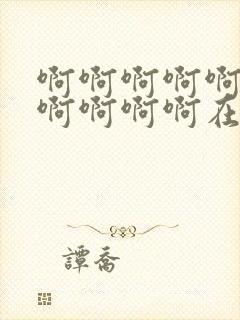 啊啊啊啊啊
啊啊啊啊在
譚喬